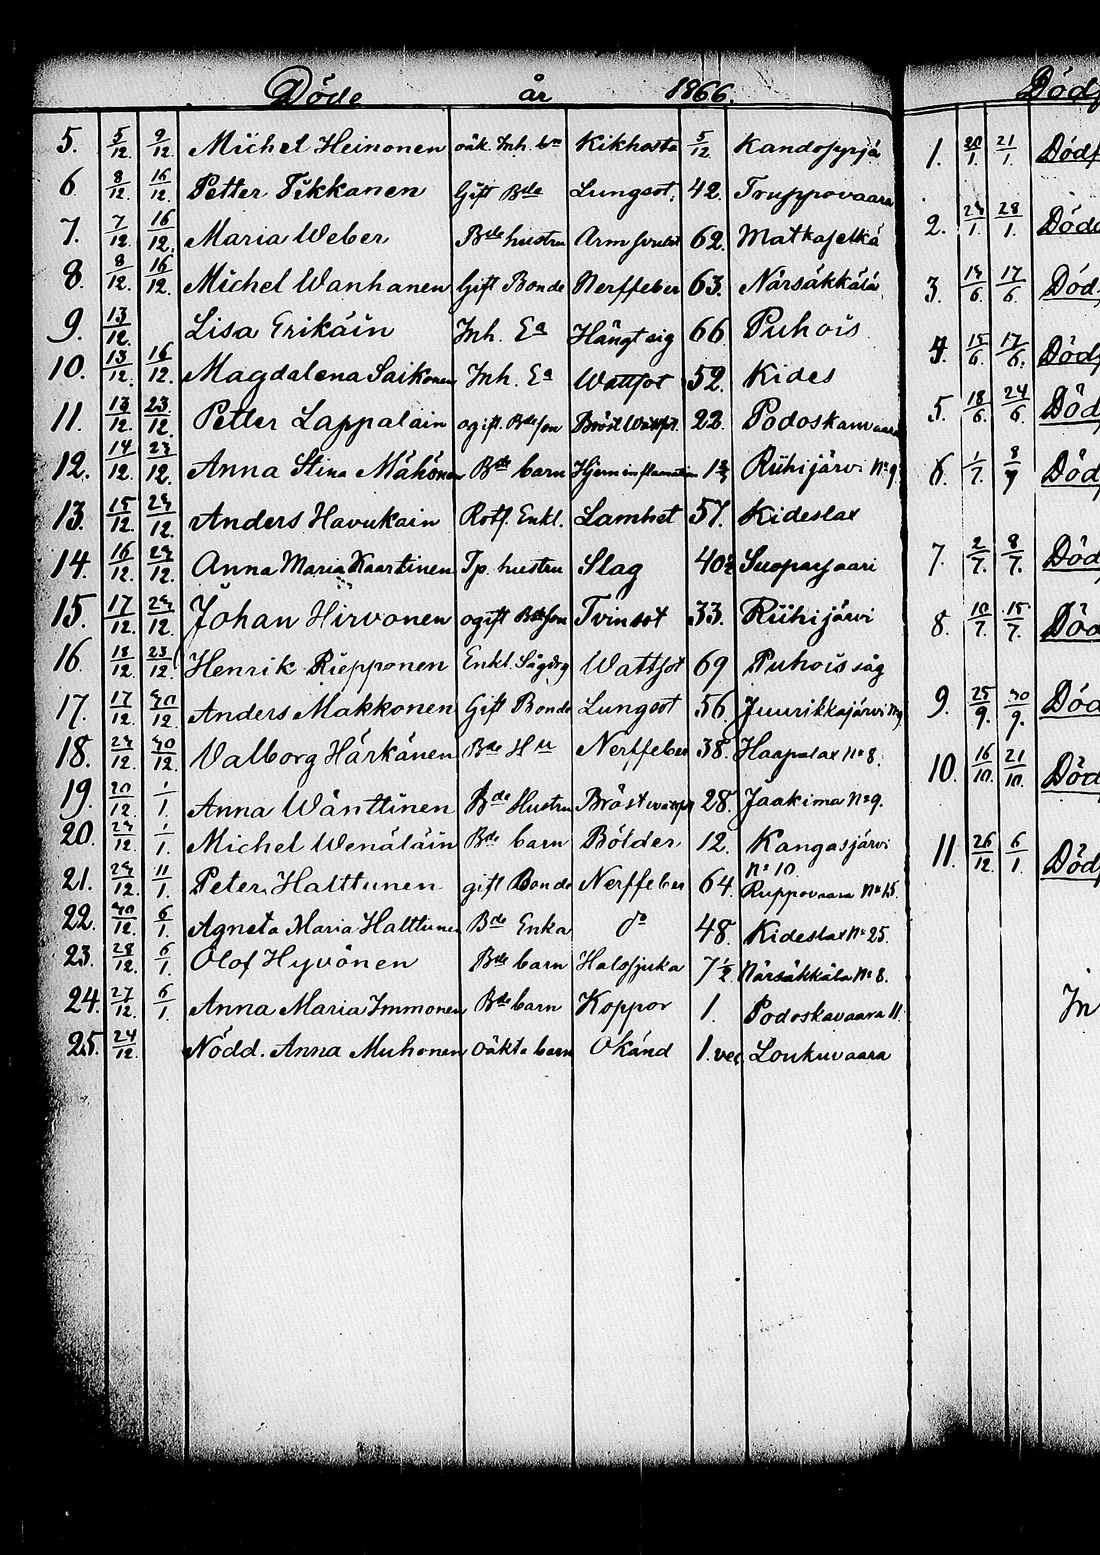 Döde år 1866.
5. 5/12 9/12 Michel Heinonen oäk. Inh. bn Kikhosta 5/12 Kandospyjä
6 8/12 16/12 Petter Tikkanen Gift Bde Lungsot. 42. Truppovaara
7. 7/12. 16/12. Maria Weber Bde hustru Arm 62. Matkaselkä
8. 8/12. 16/12. Michel Wanhanen Gift Bonde Nerffeber 63. Närsäkkälä
9. 13/12. Lisa Erikäin Inh. Ea Hängt sig 66 Puhois
10. 13/12. 16/12. Magdalena Saikonen Inh. Ea Wattsot 52. Kides
11. 13/12. 23./12. Petter Lappalain ogift. Bdeson Bröst Wattst. 22. Podoskavaara
12. 14/12. 23/12. Anna Stina Mähönen Bde barn Hjerninflamation Riihijärvi No 9
13. 15/12. 23/12. Anders Havukain Rotf. Enkl. Lamhet 57. Kideslax
14. 16/12. 23/12. Anna Maria Kaartinen Tp. hustru Slag 40½ Suoparsaari
15. 17/12. 23/12. Johan Hirvonen ogift Bdeson Tvinsot 33. Riihijärvi
16. 18/12. 23/12. Henrik Riepponen Enkl. Sågdrg Wattsot 69 Puhois såg
17. 17/12. 30/12 Anders Makkonen Gift Bonde Lungsot 56. Juurikkajärvi
18. 23/12. 30/12. Valborg Härkänen Bde Hu Nerffeber 38. Haapalax No 8.
19. 20/12 1/1. Anna Wänttinen Bde Hustru Bröstwattst 28. Jaakima No 9.
20. 23/12. 1/1. Michel Wenäläin Bde barn Bölder 12. Kangasjärvi No 10
21. 23/12. 11/1. Peter Halttunen gift Bonde Nerffeber 64. Ruppovaara No 15.
22. 30/12. 6/1. Agneta Maria Halttunen Bde Enka do 48. Kideslax No 25.
23. 28/12. 6/1. Olof Hyvönen Bde barn Halssjuka 7½ Närsäkkälä No 8.
24. 27/12. 6/1. Anna Maria Immonen Bde barn Koppor 1. Podoskavaara 11.
25. 24/12. Nödd. Anna Muhonen Oäkta barn Okänd 1. vec. Loukuvaara
Dödf
1. 20/1. 21/1. Dödf
2. 23/1. 28/1. Döde
3. 13/6. 17/6. Död.
4. 15/6. 17/6. Dödf
5. 18/6. 24/6. Död
6. 1/7. 8/7 Död
7. 2/7. 8/7. Död
8. 10/7. 15/7. Död
9. 25/9. 30/9. Död
10. 16/10. 21/10. Död
11. 26/12. 6/1 Dödf
In